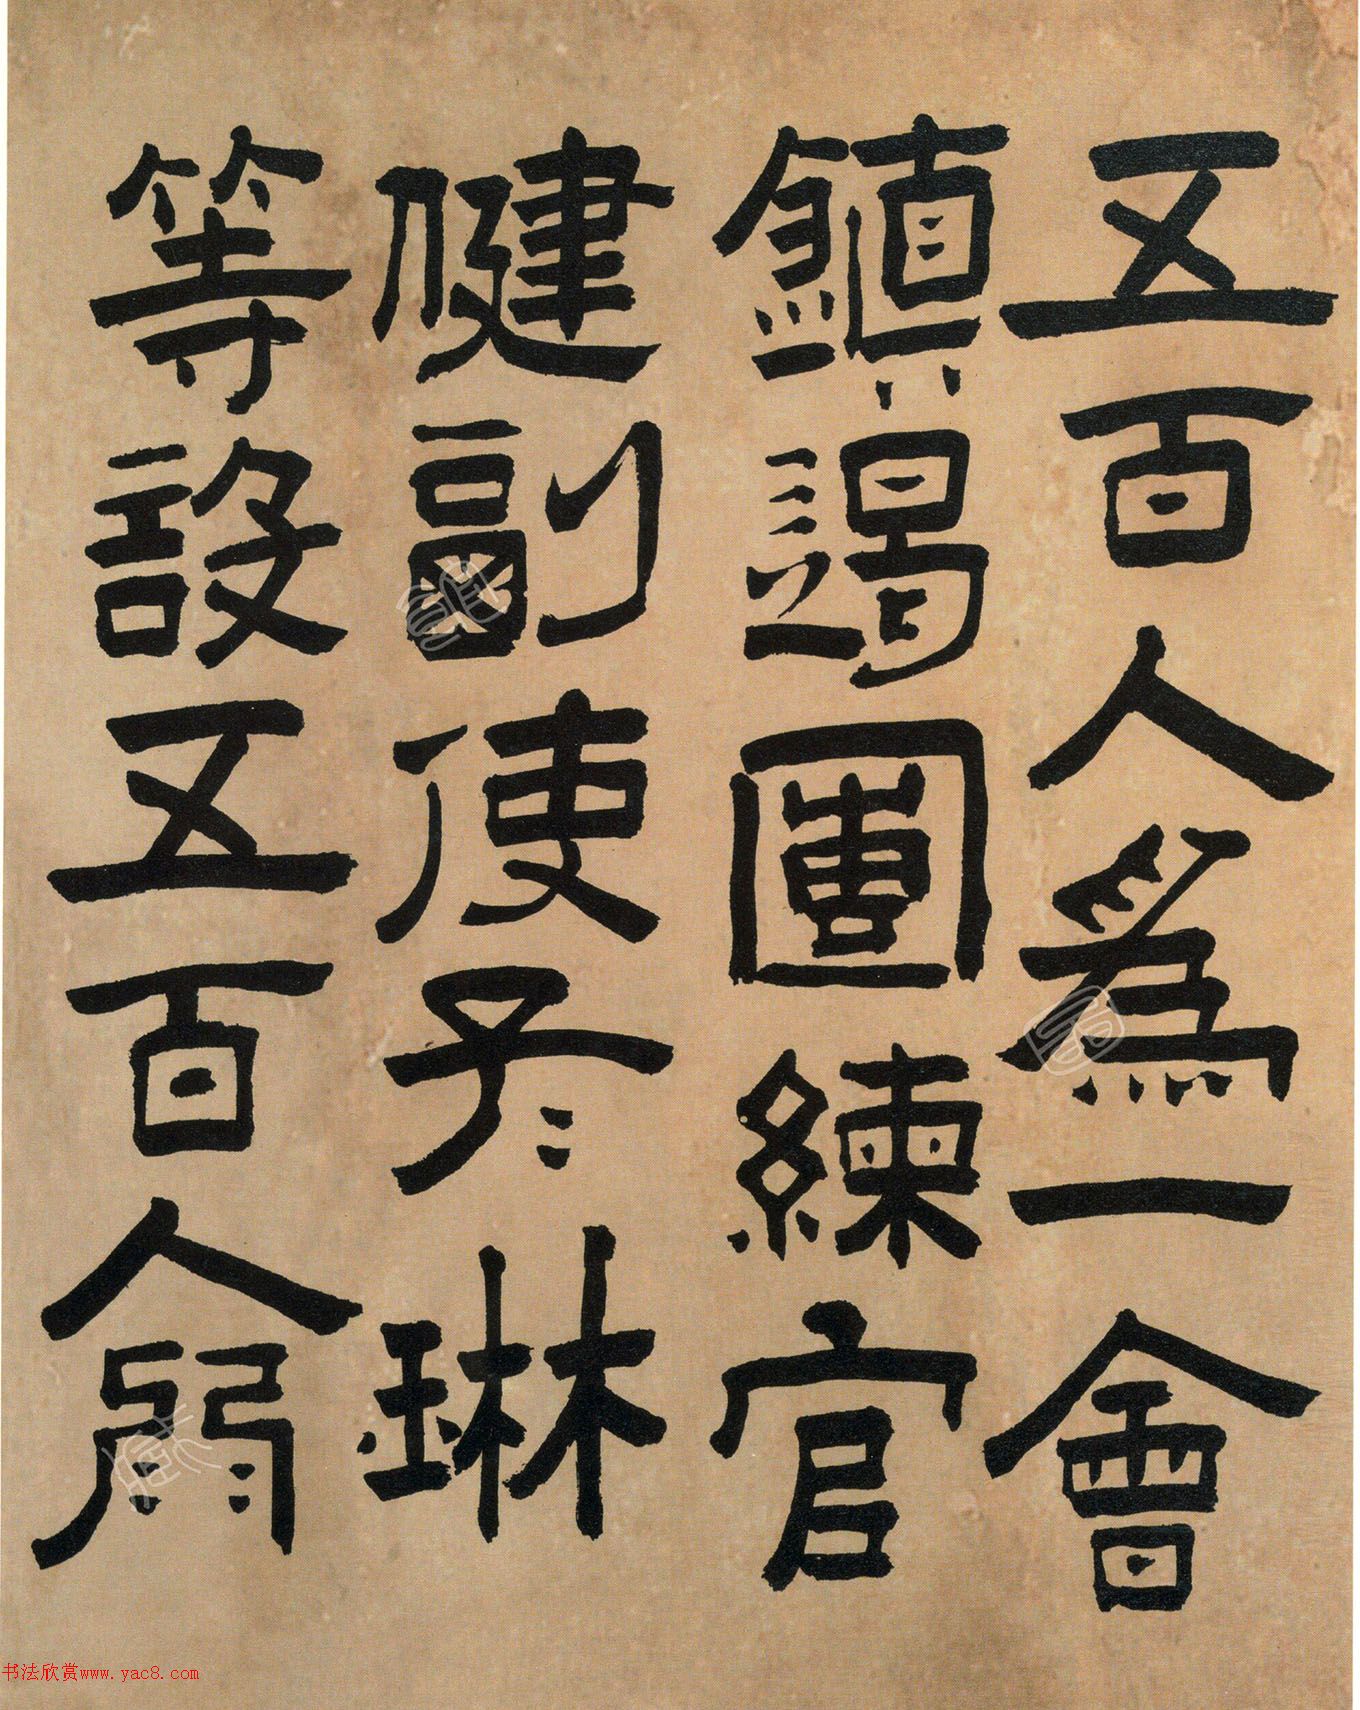 五百人爲一會
鎮謁團練官
健副使子〻琳
等設五百人齋
书法欣赏www.yac8.com